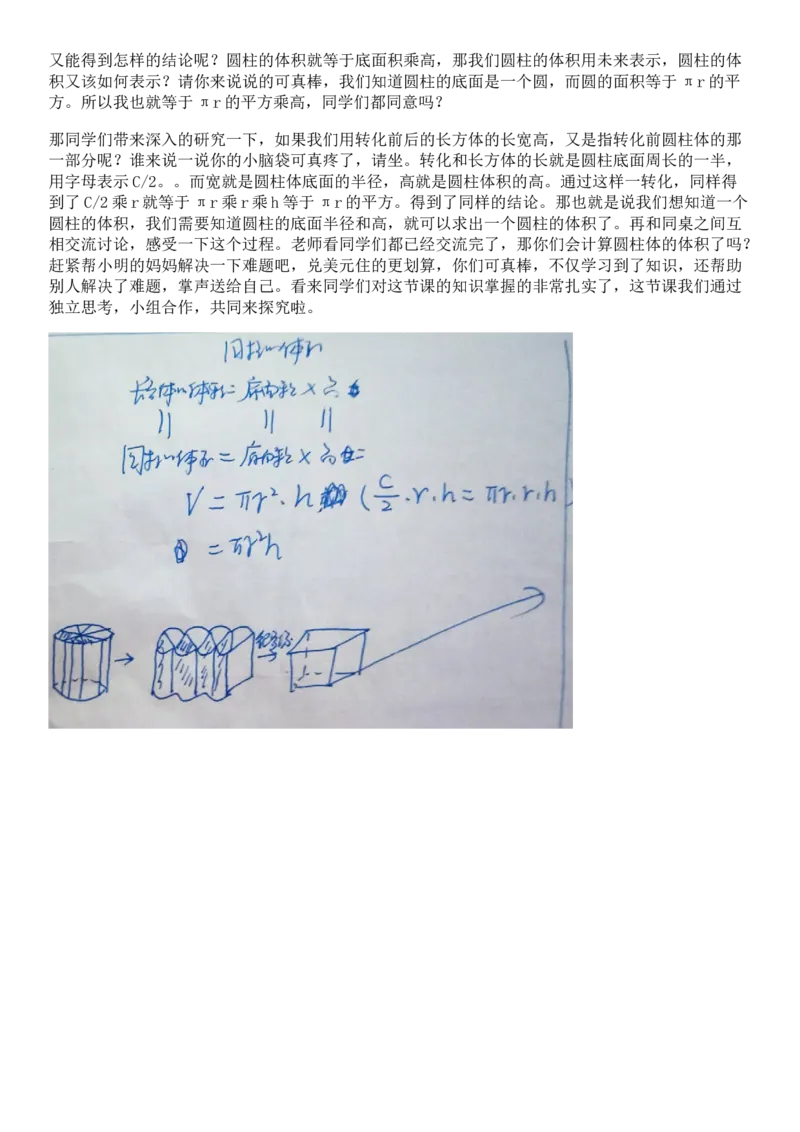 又能得到怎样的结论呢？圆柱的体积就等于底面积乘高，那我们圆柱的体积用未来表示，圆柱的体
积又该如何表示？请你来说说的可真棒，我们知道圆柱的底面是一个圆，而圆的面积等于 πr 的平
方。所以我也就等于 πr 的平方乘高，同学们都同意吗？
那同学们带来深入的研究一下，如果我们用转化前后的长方体的长宽高，又是指转化前圆柱体的那
一部分呢？谁来说一说你的小脑袋可真疼了，请坐。转化和长方体的长就是圆柱底面周长的一半，
用字母表示 C/2。。而宽就是圆柱体底面的半径，高就是圆柱体积的高。通过这样一转化，同样得
到了 C/2 乘 r 就等于 πr 乘 r 乘 h 等于 πr 的平方。得到了同样的结论。那也就是说我们想知道一个
圆柱的体积，我们需要知道圆柱的底面半径和高，就可以求出一个圆柱的体积了。再和同桌之间互
相交流讨论，感受一下这个过程。老师看同学们都已经交流完了，那你们会计算圆柱体的体积了吗？
赶紧帮小明的妈妈解决一下难题吧，兑美元住的更划算，你们可真棒，不仅学习到了知识，还帮助
别人解决了难题，掌声送给自己。看来同学们对这节课的知识掌握的非常扎实了，这节课我们通过
独立思考，小组合作，共同来探究啦。
圆柱的体积
长方体的体积=底面积×高
圆柱的体积=底面积×高
V=πr²·h (C/2·r·h=πr·r·h)
=πr²h